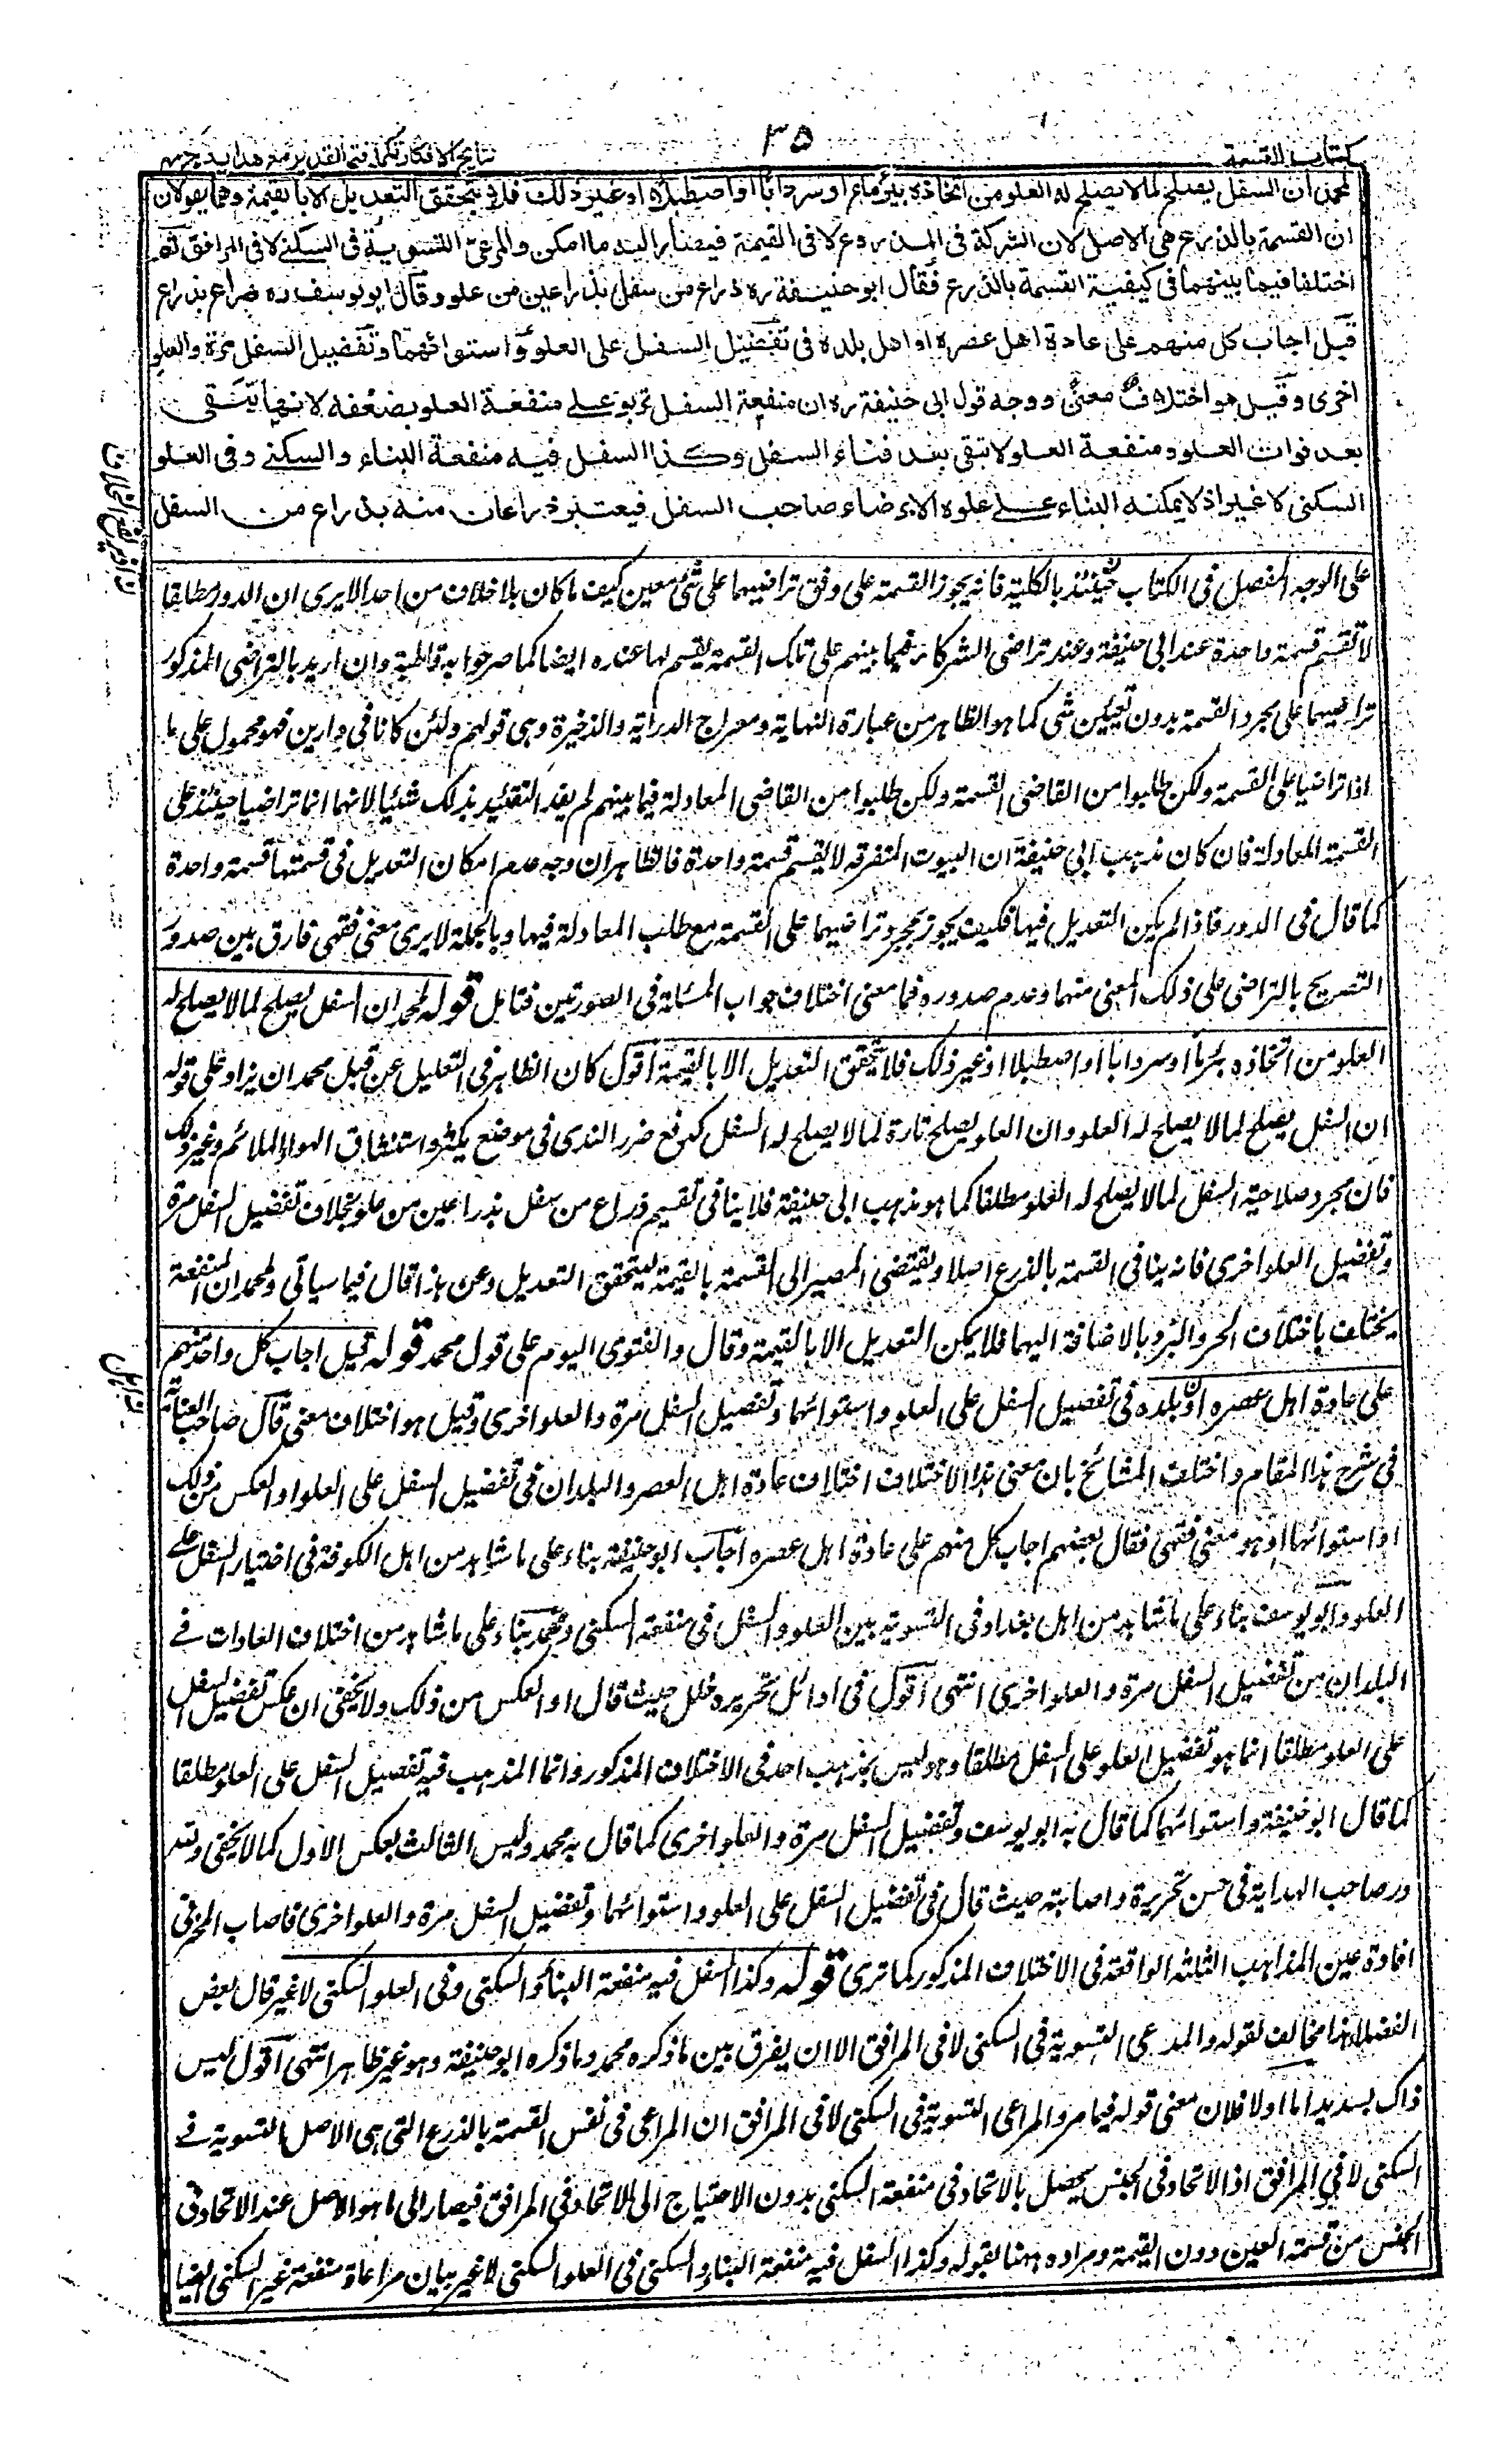 كتاب القسمة
٣٥
نتايج الافكار تكملة فتح القدير مع هدايه ج
لمحمد ان السفل يصلح لما لا يصلح له العلو من اتخاذه بئر ماء او سردابا او اصطبلا او غير ذلك فلا يتحقق التعديل الا بالقيمة وهما يقولان
ان القسمة بالذرع هى الاصل لان الشركة فى المذروع لا فى القيمة فيصار اليه ما امكن والمرعى التسوية فى السكنى لا فى المرافق ثم
اختلفا فيما بينهما فى كيفية القسمة بالذرع فقال ابو حنيفة ره ذراع من سفل بذراعين من علو وقال ابو يوسف ره ذراع بذراع
قيل اجاب كل منهم على عادة اهل عصره او اهل بلده فى تفضيل السفل على العلو و استوائهما وتفضيل السفل مرة والعلو
اخرى وقيل هو اختلاف معنى ووجه قول ابى حنيفة ره ان منفعة السفل تربو على منفعة العلو بضعفه لانها تبقى
بعد فوات العلو ومنفعة العلو لا تبقى بعد فناء السفل وكذا السفل فيه منفعة البناء والسكنى وفى العلو
السكنى لا غير اذ لا يمكنه البناء على علوه الا برضاء صاحب السفل فيعتبر ذراعان منه بذراع من السفل
على الوجه المفصل فى الكتاب حينئذ بالكلية فانه يجوز القسمة على وفق تراضيهما على شئ معين كيف ما كان بلا خلاف من احد الا يرى ان الدور مطلقا
لا تقسم قسمة واحدة عند ابى حنيفة وعند تراضى الشركاء فيما بينهم على تلك القسمة يقسم لها عنده ايضا كما صرحوا به قاطبة وان اريد بالتراضى المذكور
تراضيهما على مجرد القسمة بدون تعيين شى كما هو الظاهر من عبارة النهاية ومعراج الدراية والذخيرة وهى قولهم ولئن كانا فى دارين فهو محمول على ما
اذا تراضيا على القسمة ولكن طلبوا من القاضى القسمة ولكن طلبوا من القاضى المعادلة فيما بينهم لم يفد التقييد بذلك شيئا لانهما انما تراضيا حينئذ على
القسمة المعادلة فان كان مذهب ابى حنيفة ان البيوت المتفرقه لا يقسم قسمة واحدة فالظاهر ان وجه عدم امكان التعديل فى قسمتها قسمة واحدة
كما قال فى الدور فاذا لم يكن التعديل فيها فكيف يجوز بمجرد تراضيهما على القسمة مع طلب المعادلة فيها وبالجملة لا يرى معنى فقهى فارق بين صدور
التصريح بالتراضى على ذلك المعنى منهما وعدم صدوره فما معنى اختلاف جواب المسئلة فى الصورتين فتامل قوله لمحمد ان السفل يصلح لما لا يصلح له
العلو من اتخاذه بئرا او سردابا او اصطبلا او غير ذلك فلا يتحقق التعديل الا بالقيمة اقول كان الظاهر فى التعليل عن قبل محمد ان يزاد على قوله
ان السفل يصلح لما لا يصلح له العلو وان العلو يصلح تارة لما لا يصلح له السفل كدفع ضرر الندى فى موضع يكثر واستنشاق الهواء الملائم وغير ذلك
فان مجرد صلاحية السفل لما لا يصلح له العلو مطلقا كما هو مذهب ابى حنيفة فلا ينافى تقسيم ذراع من سفل بذراعين من علو بخلاف تفضيل السفل مرة
وتفضيل العلو اخرى فانه ينافى القسمة بالذرع اصلا ويقتضى المصير الى القسمة بالقيمة ليتحقق التعديل وعن هذا قال فيما سياتى ولمحمد ان المنفعة
يختلف باختلاف الحر والبرد بالاضافة اليهما فلا يمكن التعديل الا بالقيمة وقال والفتوى اليوم على قول محمد قوله قيل اجاب كل واحد منهم
على عادة اهل عصره او بلده فى تفضيل السفل على العلو واستوائهما وتفضيل السفل مرة والعلو اخرى وقيل هو اختلاف معنى قال صاحب العناية
فى شرح هذا المقام واختلف المشائخ بان معنى هذا الاختلاف اختلاف عادة اهل العصر والبلدان فى تفضيل السفل على العلو او العكس من ذلك
او استوائهما او هو معنى فقهى فقال بعضهم اجاب كل منهم على عادة اهل عصره اجاب ابو حنيفة بناء على ما شاهد من اهل الكوفة فى اختيار السفل على
العلو وابو يوسف بناء على ما شاهد من اهل بغداد فى التسوية بين العلو والسفل فى منفعة السكنى ومحمد بناء على ما شاهد من اختلاف العادات فى
البلدان من تفضيل السفل مرة والعلو اخرى انتهى اقول فى اوائل تحريره خلل حيث قال او العكس من ذلك ولا يخفى ان عكس تفضيل السفل
على العلو مطلقا انما هو تفضيل العلو على السفل مطلقا وهو ليس بمذهب احد فى الاختلاف المذكور وانما المذهب فيه تفضيل السفل على العلو مطلقا
كما قال ابو حنيفة واستوائهما كما قال به ابو يوسف وتفضيل السفل مرة والعلو اخرى كما قال به محمد وليس الثالث بعكس الاول كما لا يخفى ولله
در صاحب الهداية فى حسن تحريرة واصابته حيث قال فى تفضيل السفل على العلو واستوائهما وتفضيل السفل مرة والعلو اخرى فاصاب المحز فى
افادة عين المذاهب الثلثه الواقعة فى الاختلاف المذكور كما ترى قوله وكذا السفل فيه منفعة البناء والسكنى وفى العلو السكنى لا غير قال بعض
الفضلاء هذا مخالف لقوله والمدعى التسوية فى السكنى لا فى المرافق الا ان يفرق بين ما ذكره محمد وما ذكره ابو حنيفة وهو غير ظاهر انتهى اقول ليس
ذاك بسديد اما اولا فلان معنى قوله فيما مر والمراعى التسوية فى السكنى لا فى المرافق ان المراعى فى نفس القسمة بالذرع التى هى الاصل التسوية فى
السكنى لا فى المرافق اذ الاتحاد فى الجنس يحصل بالاتحاد فى منفعة السكنى بدون الاحتياج الى الاتحاد فى المرافق فيصار الى ما هو الاصل عند الاتحاد فى
الجنس من قسمة العين دون القيمة ومراده ههنا بقوله وكذا السفل فيه منفعة البناء والسكنى فى العلو السكنى لا غير بيان مراعاة منفعة غير السكنى ايضا